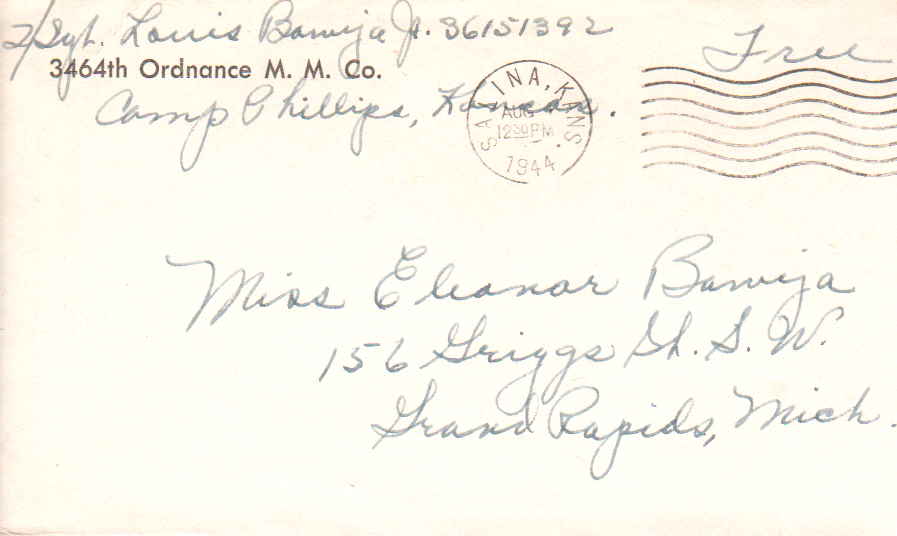 T/Sgt. Louis Bawija Jr. 36151392
Free
3464th Ordnance M. M. Co.
Camp Phillips, Kansas.
SALINA, KANS.
AUG
12 30 PM
1944
Miss Eleanor Bawija
156 Griggs St. S. W.
Grand Rapids, Mich.